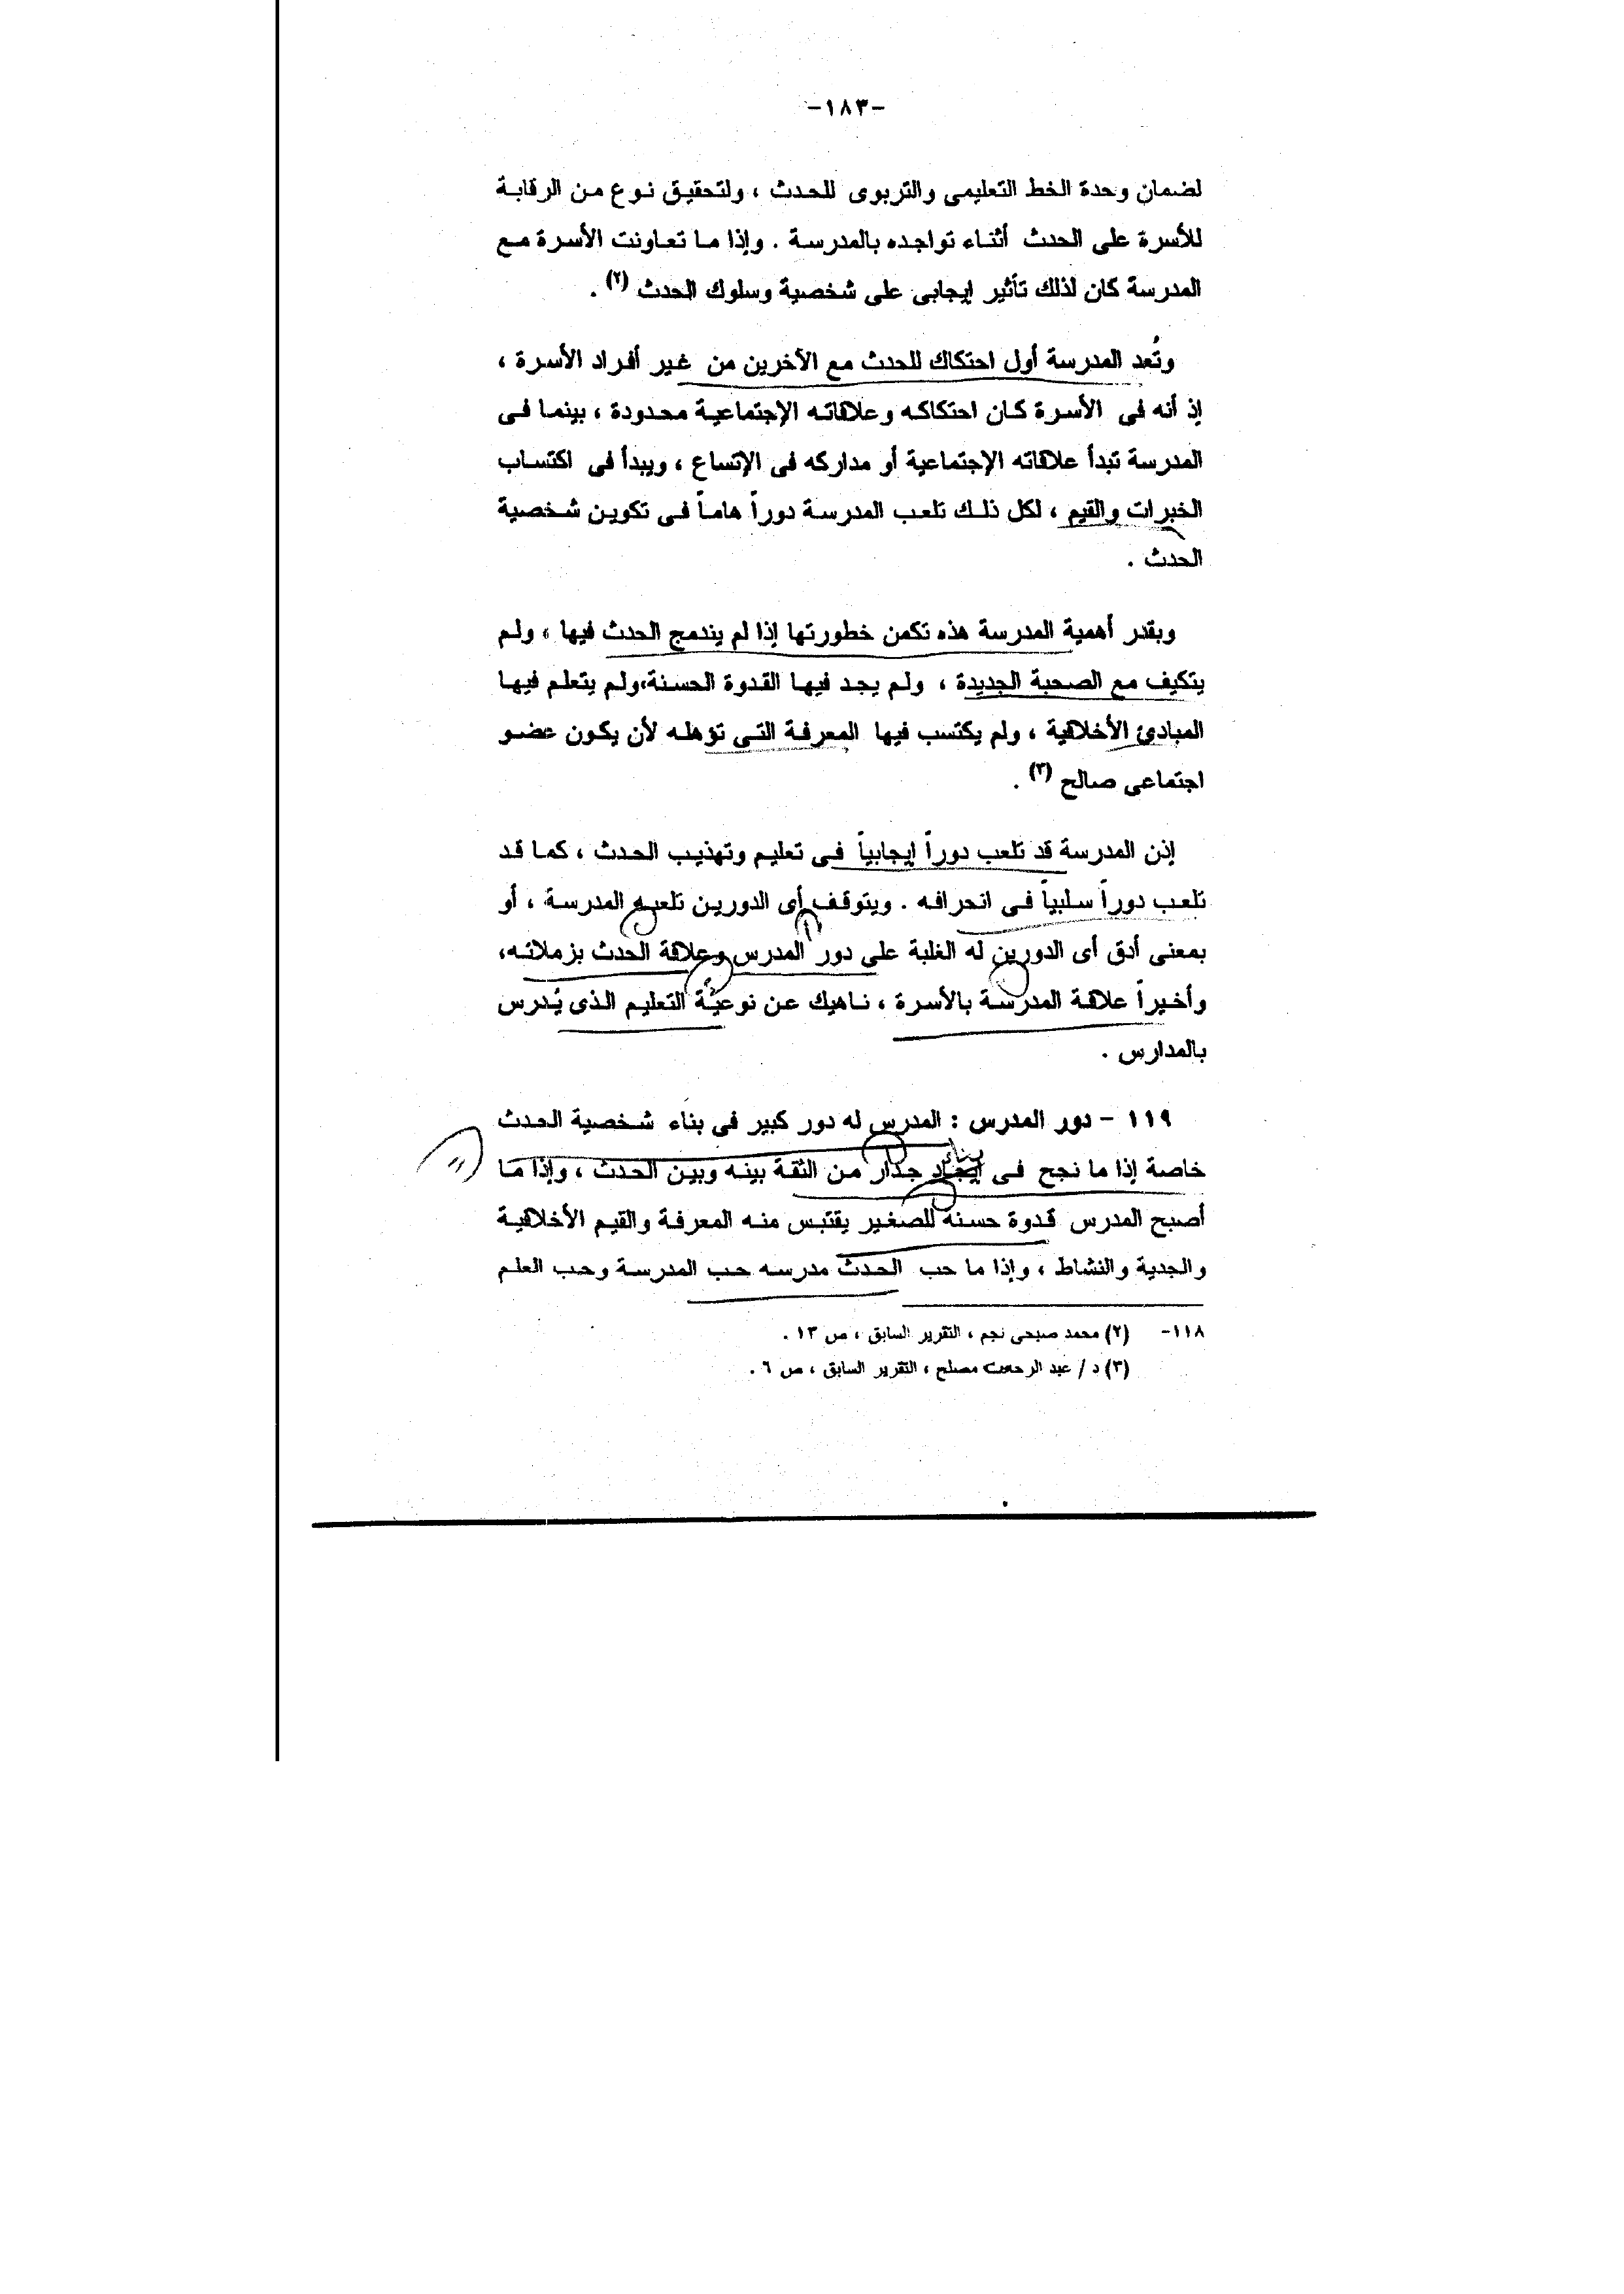 -١٨٣-
لضمان وحدة الخط التعليمى والتربوى للحدث ، ولتحقيق نوع من الرقابة
للأسرة على الحدث أثناء تواجده بالمدرسة . وإذا ما تعاونت الأسرة مع
المدرسة كان لذلك تأثير إيجابى على شخصية وسلوك الحدث (٢) .
وتُعد المدرسة أول احتكاك للحدث مع الآخرين من غير أفراد الأسرة ،
إذ أنه فى الأسرة كان احتكاكه وعلاقاته الإجتماعية محدودة ، بينما فى
المدرسة تبدأ علاقاته الإجتماعية أو مداركه فى الإتساع ، ويبدأ فى اكتساب
الخبرات والقيم ، لكل ذلك تلعب المدرسة دوراً هاماً فى تكوين شخصية
الحدث .
وبقدر أهمية المدرسة هذه تكمن خطورتها إذا لم يندمج الحدث فيها ، ولم
يتكيف مع الصحبة الجديدة ، ولم يجد فيها القدوة الحسنة،ولم يتعلم فيها
المبادئ الأخلاقية ، ولم يكتسب فيها المعرفة التى تؤهله لأن يكون عضو
اجتماعى صالح (٣) .
إذن المدرسة قد تلعب دوراً إيجابياً فى تعليم وتهذيب الحدث ، كما قد
تلعب دوراً سلبياً فى انحرافه . ويتوقف أى الدورين تلعبه المدرسة ، أو
بمعنى أدق أى الدورين له الغلبة على دور المدرس وعلاقة الحدث بزملائه،
وأخيراً علاقة المدرسة بالأسرة ، ناهيك عن نوعيّة التعليم الذى يُدرس
بالمدارس .
١١٩ - دور المدرس : المدرس له دور كبير فى بناء شخصية الحدث
بناء
خاصة إذا ما نجح فى إيجاد جدار من الثقة بينه وبين الحدث ، وإذا ما
أصبح المدرس قدوة حسنة للصغير يقتبس منه المعرفة والقيم الأخلاقية
والجدية والنشاط ، وإذا ما حب الحدث مدرسه حب المدرسة وحب العلم
١١٨- (٢) محمد صبحى نجم ، التقرير السابق ، ص ١٣ .
(٣) د / عبد الرحمن مصلح ، التقرير السابق ، ص ٦ .